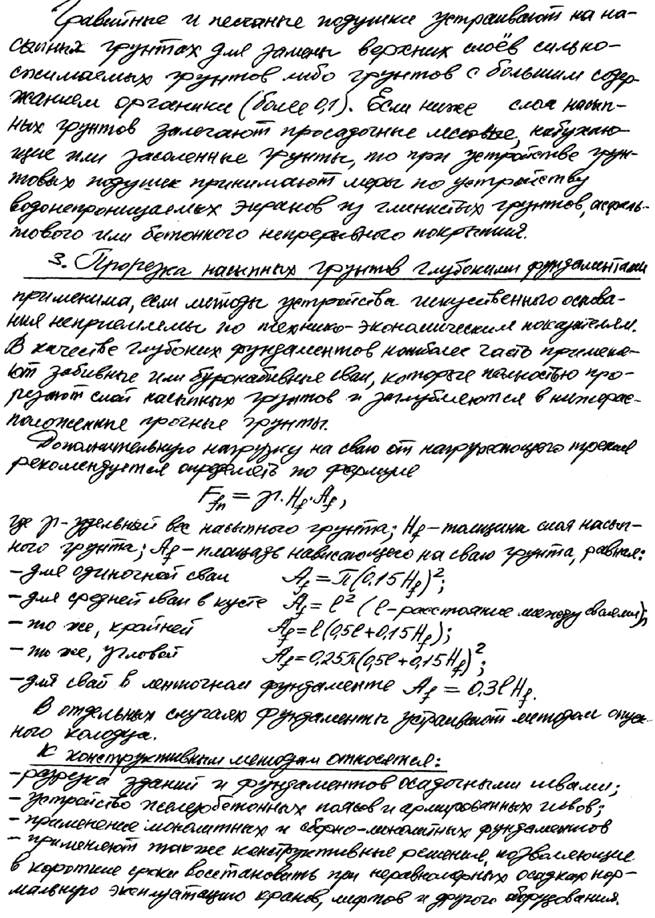 Гравийные и песчаные подушки устраивают на на-
сыпных грунтах для замены верхних слоёв сильно-
сжимаемых грунтов либо грунтов с большим содер-
жанием органики (более 0,1). Если ниже слоя насып-
ных грунтов залегают просадочные лессовые, набухаю-
щие или засоленные грунты, то при устройстве грун-
товых подушек принимают меры по устройству
водонепроницаемых экранов из глинистых грунтов, асфаль-
тового или бетонного непрерывного покрытия.
3. Прорезка насыпных грунтов глубокими фундаментами
применима, если методы устройства искусственного основа-
ния неприемлемы по технико-экономическим показателям.
В качестве глубоких фундаментов наиболее часто применя-
ют забивные или буронабивные сваи, которые полностью про-
резают слой насыпных грунтов и заглубляются в нижерас-
положенные прочные грунты.
Дополнительную нагрузку на сваю от нагружающего трения
рекомендуется определять по формуле
F_fn = γ·H_f·A_f,
где γ-удельный вес насыпного грунта; H_f-толщина слоя насып-
ного грунта; A_f-площадь нависающего на сваю грунта, равная:
-для одиночной сваи A_f = π(0,15H_f)²;
-для средней сваи в кусте A_f = l² (l-расстояние между сваями);
-то же, крайней A_f = l(0,5l+0,15H_f);
-то же, угловой A_f = 0,25π(0,5l+0,15H_f)²;
-для свай в ленточном фундаменте A_f = 0,3lH_f.
В отдельных случаях фундаменты устраивают методом опуск-
ного колодца.
К конструктивным методам относятся:
-разрезка зданий и фундаментов осадочными швами;
-устройство железобетонных поясов и армированных швов;
-применение монолитных и сборно-монолитных фундаментов
-применяют также конструктивные решения, позволяющие
в короткие сроки восстановить при неравномерных осадках нор-
мальную эксплуатацию кранов, лифтов и другого оборудования.